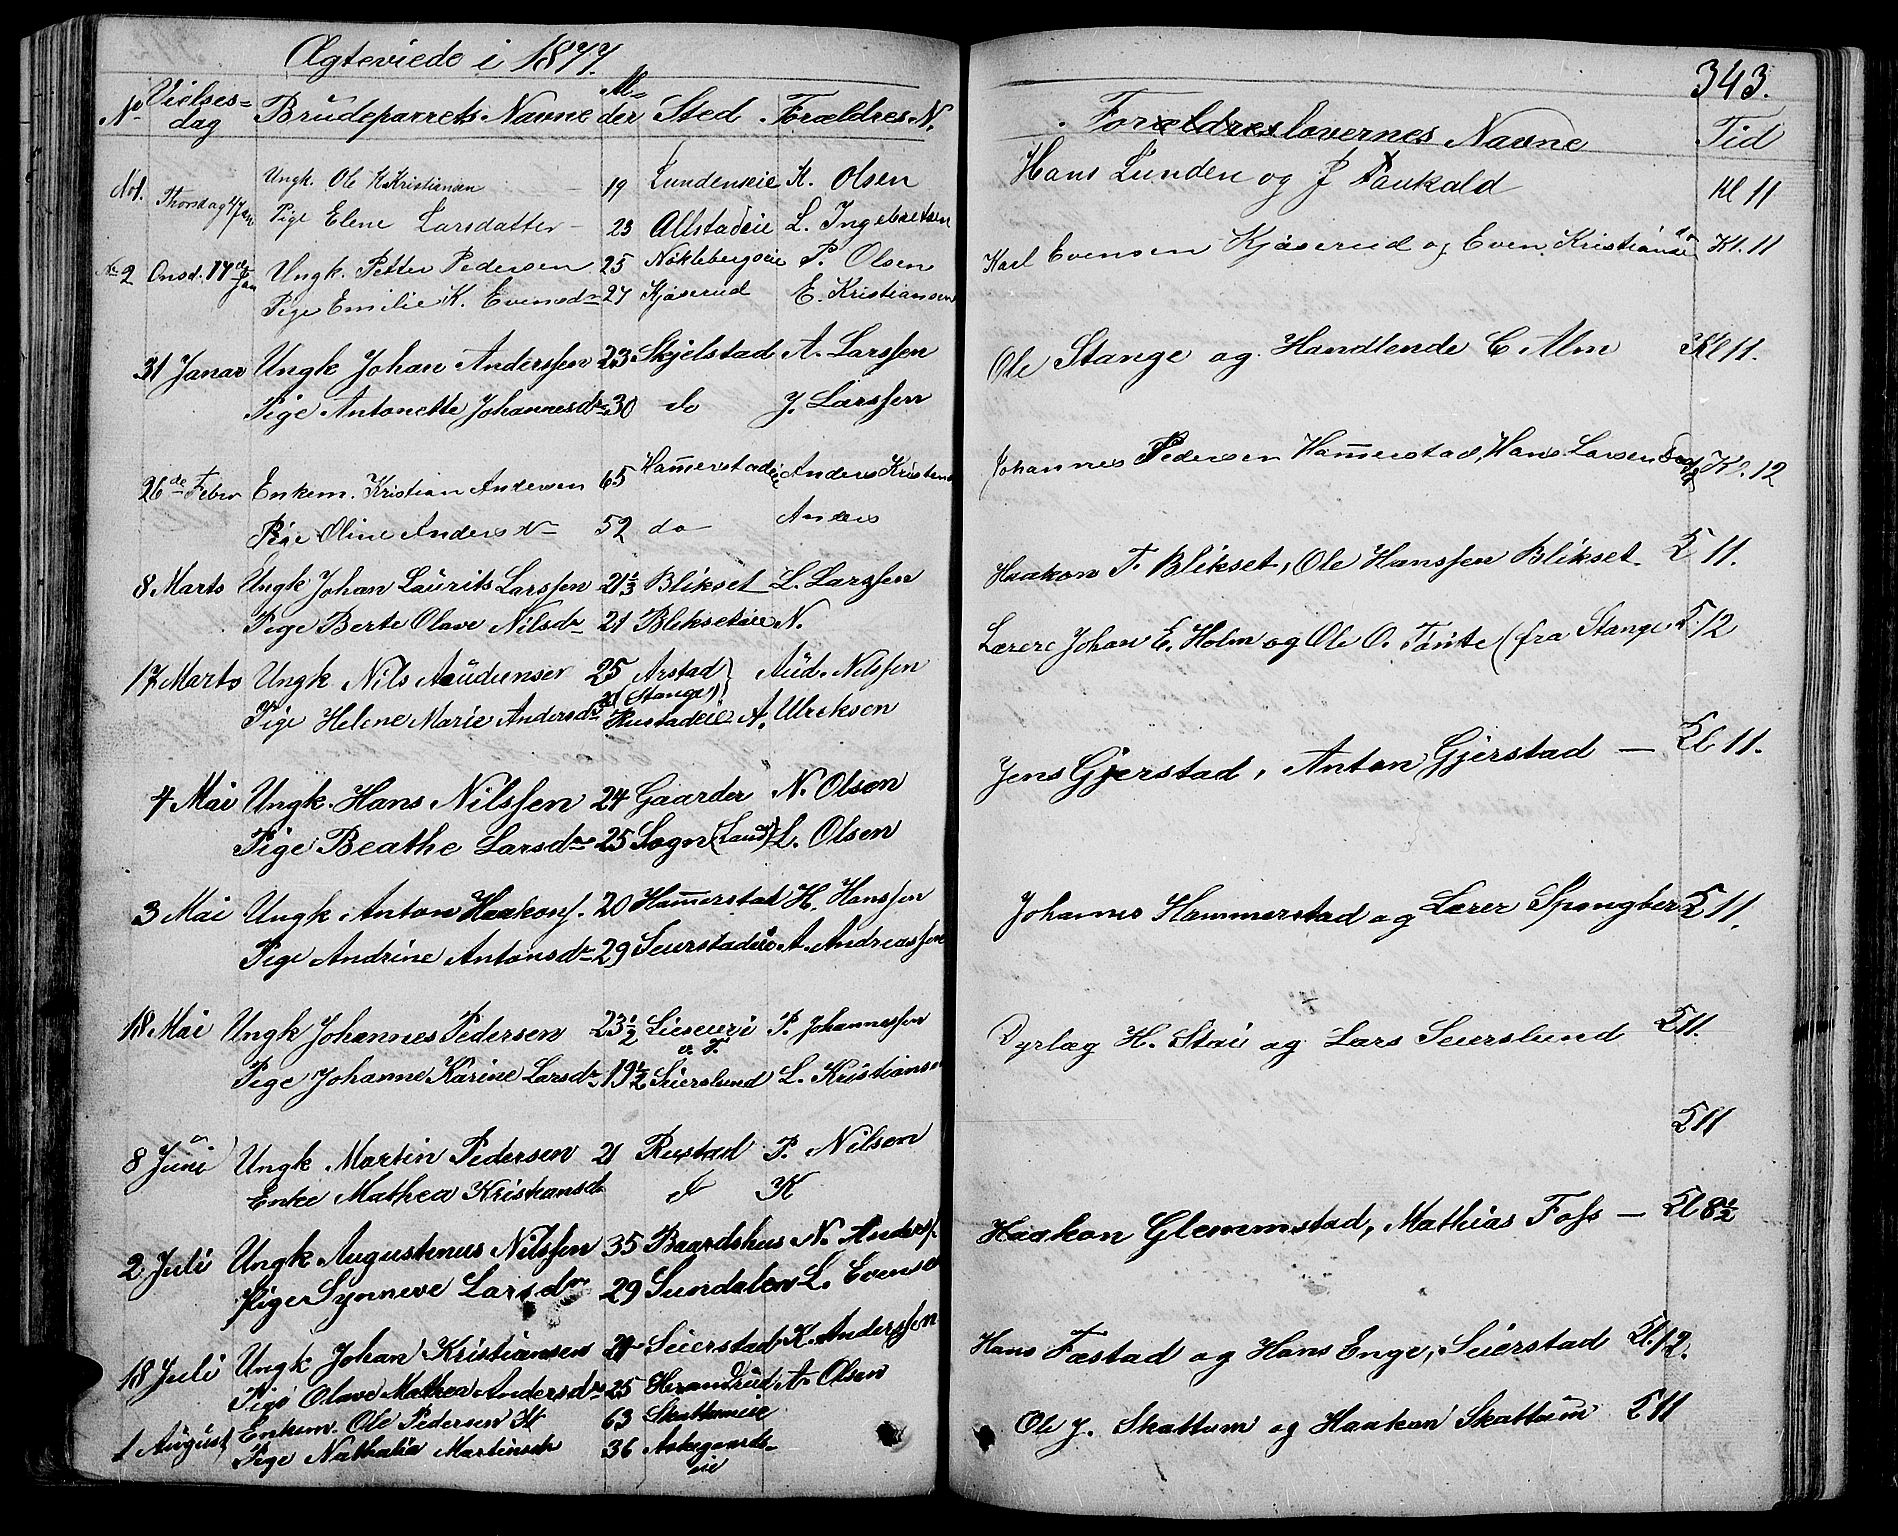 Ægteviede i 1877.
343.
No Vielsesdag Brudeparrets Navne Alder Sted Forældres N.
Forloverernes Navne Tid
No 1. Thorsdag 4 Jan Ungk. Ole K Kristiansen 19 Lundenseie K. Olsen Hans Lunden og J Faukald Kl 11
Pige Elene Larsdatter 23 Alstadeie L. Ingebretsen
No 2 Onsd. 17de Jan Ungk. Petter Pedersen 25 Nøklebergseie P. Olsen Karl Evensen Kjøserud og Even Kristiansen do Kl. 11
Pige Emilie K. Evensdr 27 Kjøserud E. Kristiansen
31 Januar Ungk Johan Anderssen 23 Skjelstad A. Larssen Ole Stange og Handlende C Alm Kl 11.
Pige Antonette Johannesdr 30 do J. Larssen
26de Febr Enkem. Kristian Andersen 65 Hammerstadeie Anders Kristians Johannes Pedersen Hammerstad, Hans Larsen Kl. 12
Pige Oline Andersdr 52 do Anders
8 Marts Ungk Johan Laurits Larssen 21 1/3 Blikset L. Larssen Haakon T. Blikset, Ole Hanssen Blikset Kl 11.
Pige Berte Olave Nilsdr 21 Blikseteie N.
17 Marts Ungk Nils Audunsen 25 Arstad (Stange) Aud. Nilssen Lærere Johan E. Holm og Ole O. Tønte (fra Stange Kl. 12
Pige Helene Marie Andersdr Rustadeie A. Ulriksen
4 Mai Ungk. Hans Nilssen 24 Gaarder N. Olsen Jens Gjerstad, Anton Gjerstad — Kl 11.
Pige Beathe Larsdr 25 Sogn (Land) L. Olsen
3 Mai Ungk Anton Haakons. 20 Hammerstad H. Hanssen Johannes Hammerstad og Lærer Spongber Kl 11.
Pige Andrine Antonsdr 29 Seierstadeie A. Andreassen
18 Mai Ungk Johannes Pedersen 23 1/2 P. Johannessen Dyrlæg H. Stai og Lars Seierslund Kl 11.
Pige Johanne Karine Larsdr 19 1/2 Seierslund L. Kristiansen
8 Juni Ungk Martin Pedersen 21 Rustad P. Nilsen Kl 11
Enke Mathea Kristiansd. do K
2 Juli Ungk Augustinus Nilssen 35 Baardshus N. Anderss. Haakon Glemmstad, Mathias Foss — Kl 8 1/2
Pige Synneve Larsdr 29 Sundalen L. Evensen
18 Juli Ungk Johan Kristiansen 21 Seierstad K. Anderssen Hans Fæstad og Hans Enge, Seierstad Kl. 12.
Pige Olave Mathea Andersdr 25 Herandrud A. Olsen
1 August Enkem. Ole Pedersen St 63 Skattumeie Ole J. Skattum og Haakon Skattum Kl 11
Pige Nathalia Martinsdr 36 Askegaardseie